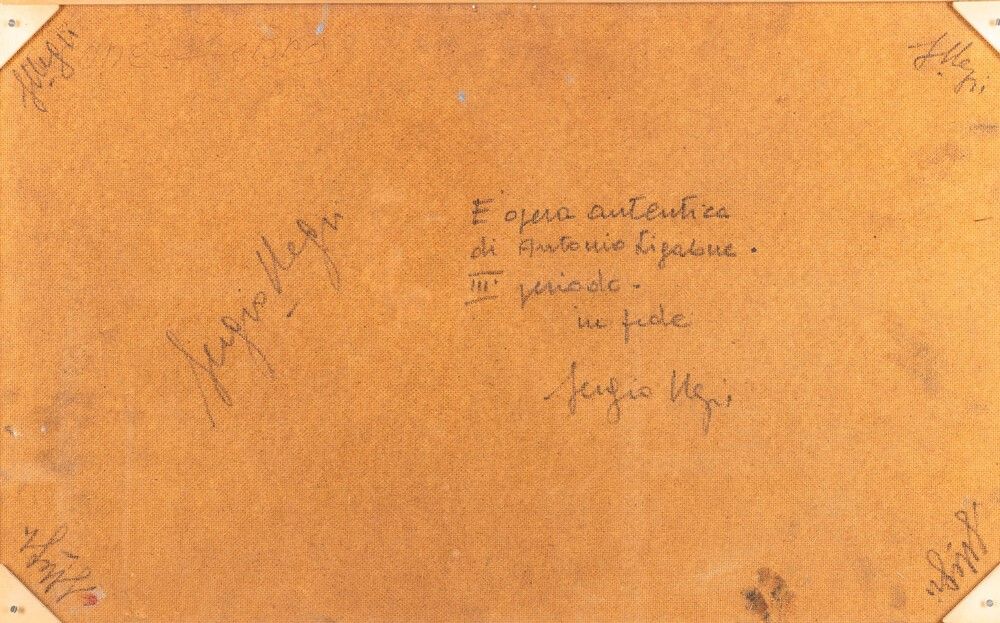 S Negri
S Negri
E' opera autentica
di Antonio Ligabue.
III° periodo.
in fede
Sergio Negri
Sergio Negri
S Negri
S Negri